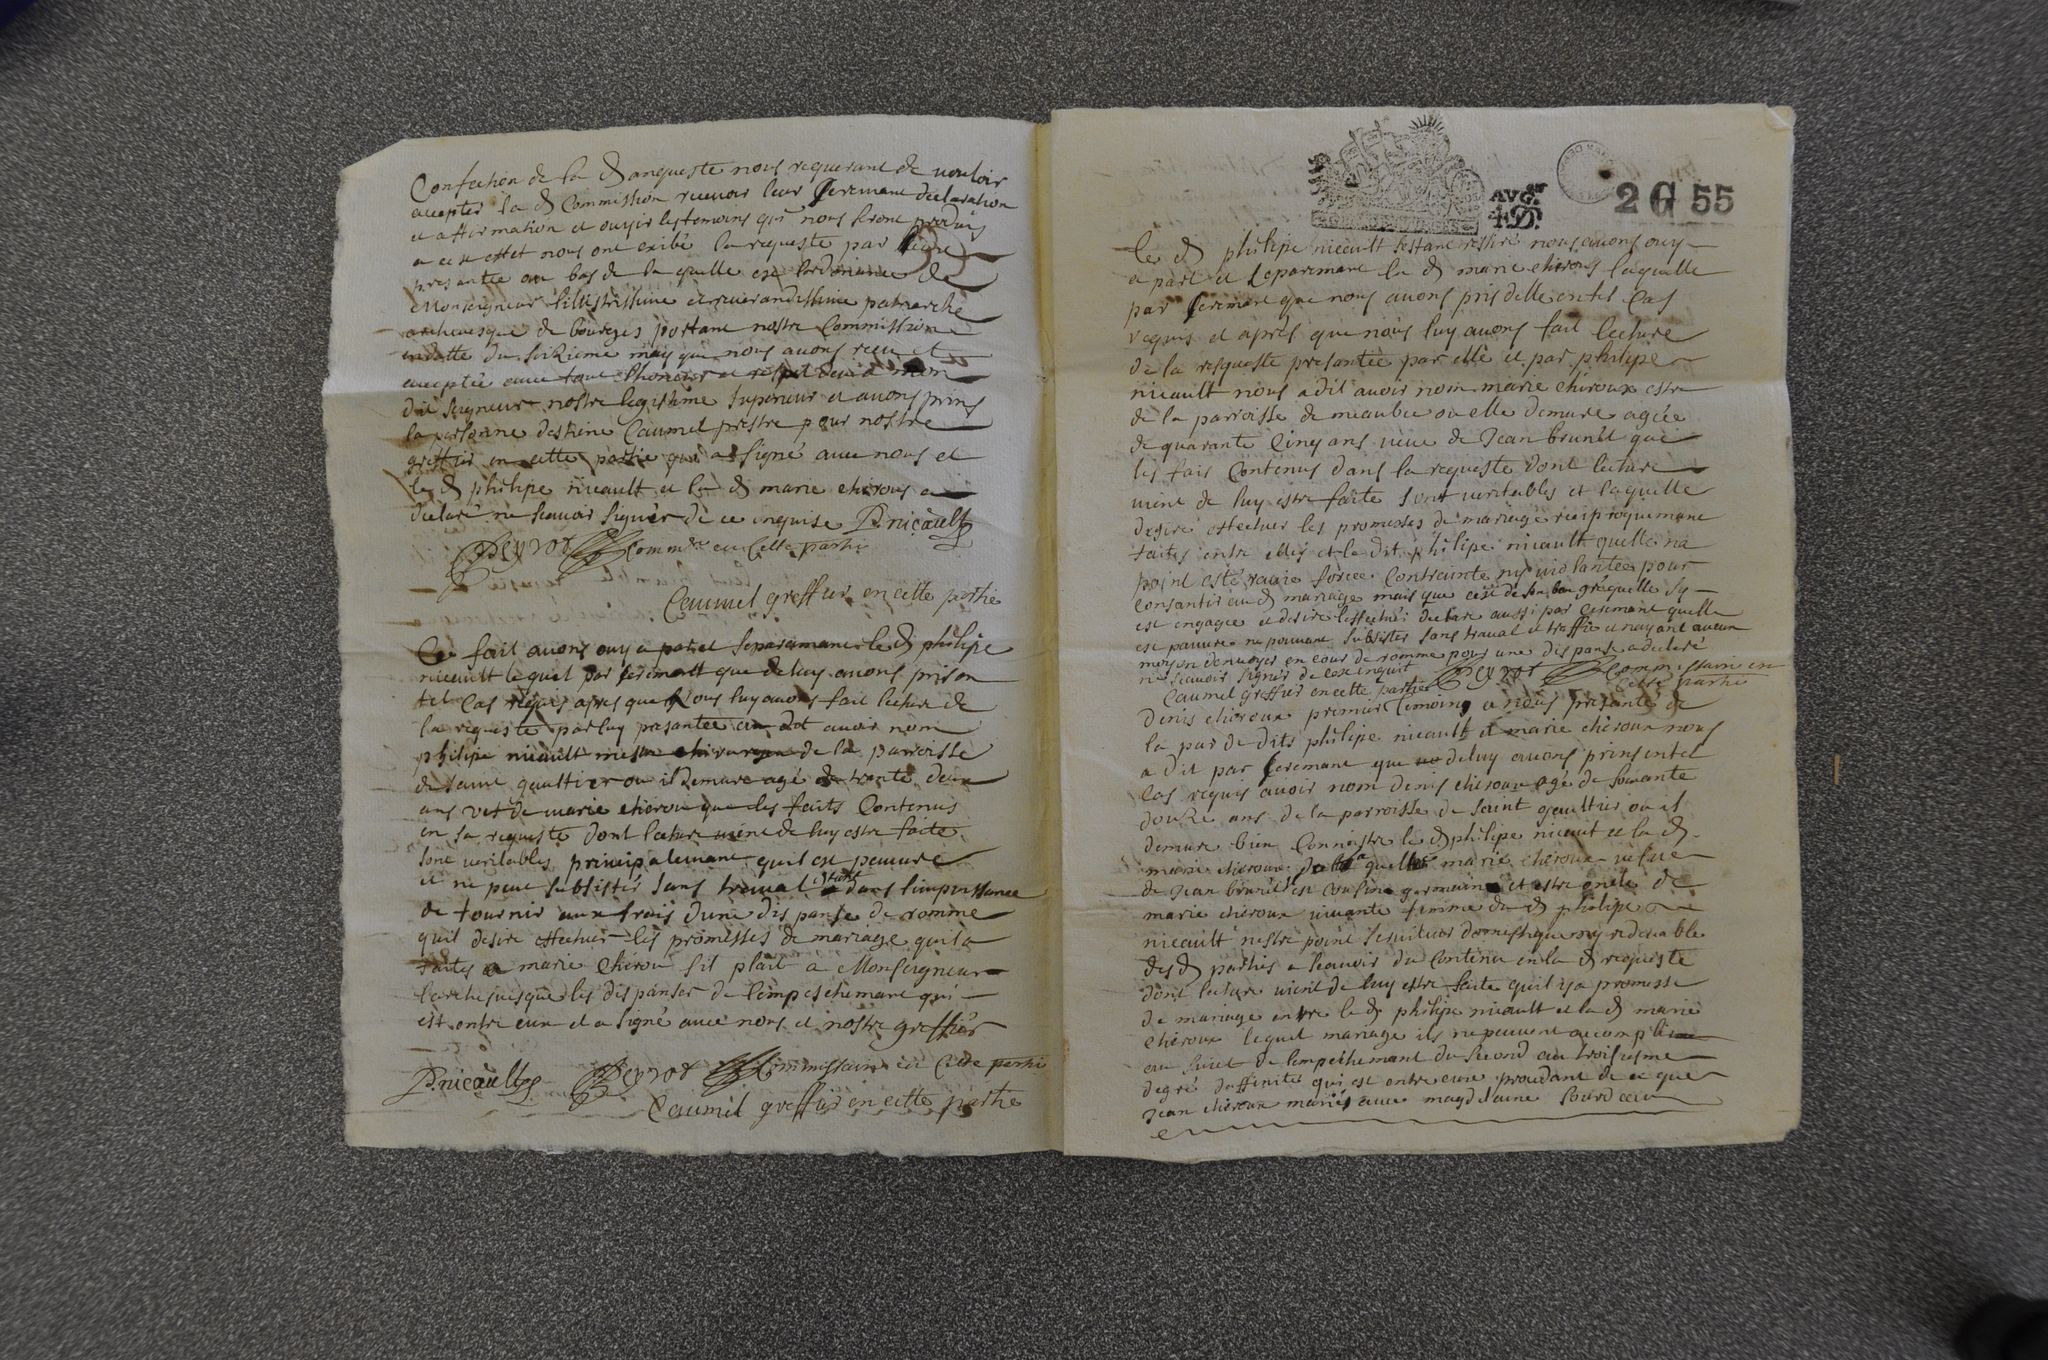 Confection de la d anqueste nous requerant de vouloir
accepter la d Commission recevoir leur seremant declaration
et affirmation et ouyir les temoins qui nous seront produis
a cet effet nous ont exibé la requeste par
presantée au bas de laquelle est lordonnance de
Monseigneur lillustrissime et reverandissime patriarche
archevesque de bourges portant nostre Commission
en datte du sixieme may que nous avons receu et
acceptée avec tout lhonneur et respet deu a mon
dit seigneur nostre legitime superieur et avons prins
la personne destiene Caumel prestre pour nostre
greffier en cette partie qui a signé avec nous et
le d philipe nicault et la d marie cheroux a
declaré ne scavoir signer de ce enquise P. nicault
Peyrot Comm.re en Cette partie
Caumel greffier en cette partie
Ce fait avons ouy a part et separemant le d philipe
nicault lequel par seremant que de luy avons pris en
tel Cas requis apres que Nous luy avons fait lecture de
la requeste par luy presantée a dit avoir nom
philipe nicault de la parroisse
de saint gaultier ou il demeure agé de trente deux
ans vef de marie cherou que les faits Contenus
en sa requeste dont lecture vient de luy estre faite
sont veritables principalemant quil est peauvre
et ne peut subsister sans traval estant dans limpuissance
de fournir aux frais dune dispanse de romme
quil desire effectuer les promesses de mariage quil a
faites a marie Cherou sil plait a Monseigneur
larchevesque les dispanser de lempeschemant qui
est entre eux et a signé avec nous et nostre greffier
P. nicault Peyrot Commissaire en Cette partie
Caumel greffier en cette partie
AVG.on
4 S
2 G 55
le d philipe nicault sestant restiré nous avons ouy
a part et separemant la d marie cheroux laquelle
par seremant que nous avons pris delle en tel Cas
requis et aprés que nous luy avons fait lecture
de la resqueste presantée par elle et par philipe
nicault nous a dit avoir nom marie cheroux estre
de la parroisse de ou elle demure agée
de quarante Cinq ans veve de Jean brunet que
les fais Contenus dans la requeste dont lecture
vient de luy estre faite sont veritables et laquelle
desire effectuer les promesses de mariage reciproquemant
faites entre elles et le dit philipe nicault quelle na
point esté ravie forcée Contrainte ny violantée pour
consantir au d mariage mais que cest de son bon gré quelle sy
est engagée et desire leffectuer declare aussi par seremant quelle
est pauvre ne pouvant subsister sans traval et traffic et nayant aucun
moyen denvoyer en cour de romme pour une dispanse a declaré
ne scavoir signer de ce enquise Peyrot Commissaire en
Caumel greffier en cette partie Cette partie
Denis cheroux premier temoins a nous presanté de
la par de dits philipe nicault et marie cheroux nous
a dit par seremant que de luy avons prins en tel
Cas requis avoir nom denis cheroux agé de soixante
douze ans de la parroisse de saint gaultier ou il
demure bien Connoistre le d philipe nicault et la d
marie cheroux de laquelle marie cheroux vefve
de Jean brunet est cousine germaine et estre oncle de
marie cheroux vivante femme du d philipe
nicault nestre point serviteur domestique ny redevable
des d parties a scavoir du Contenu en la d requeste
dont lecture vient de luy estre faite quil y a promesse
de mariage entre le d philipe nicault et la d marie
cheroux lequel mariage ils ne peuvent acomplir
au suiet de lempechemant du second au troisiesme
degré daffinité qui est entre eux provenant de ce que
Jean cheroux marié avec magdelaine